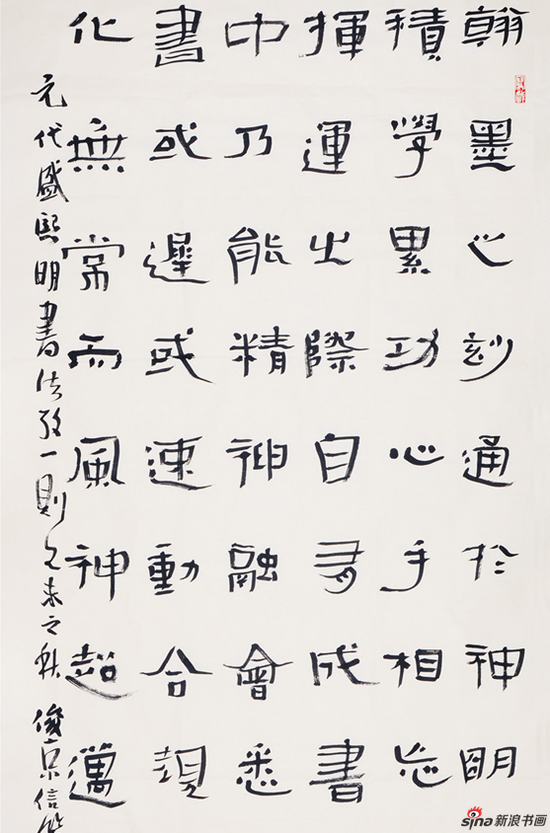 翰墨之玅通於神明
積學累功心手相忘
揮運之際自有成書
中乃能精神融會悉
書或遲或速動合規
化無常而風神超邁
元代盛熙明書法攷一則乙未之秋 俊京信
sina新浪书画